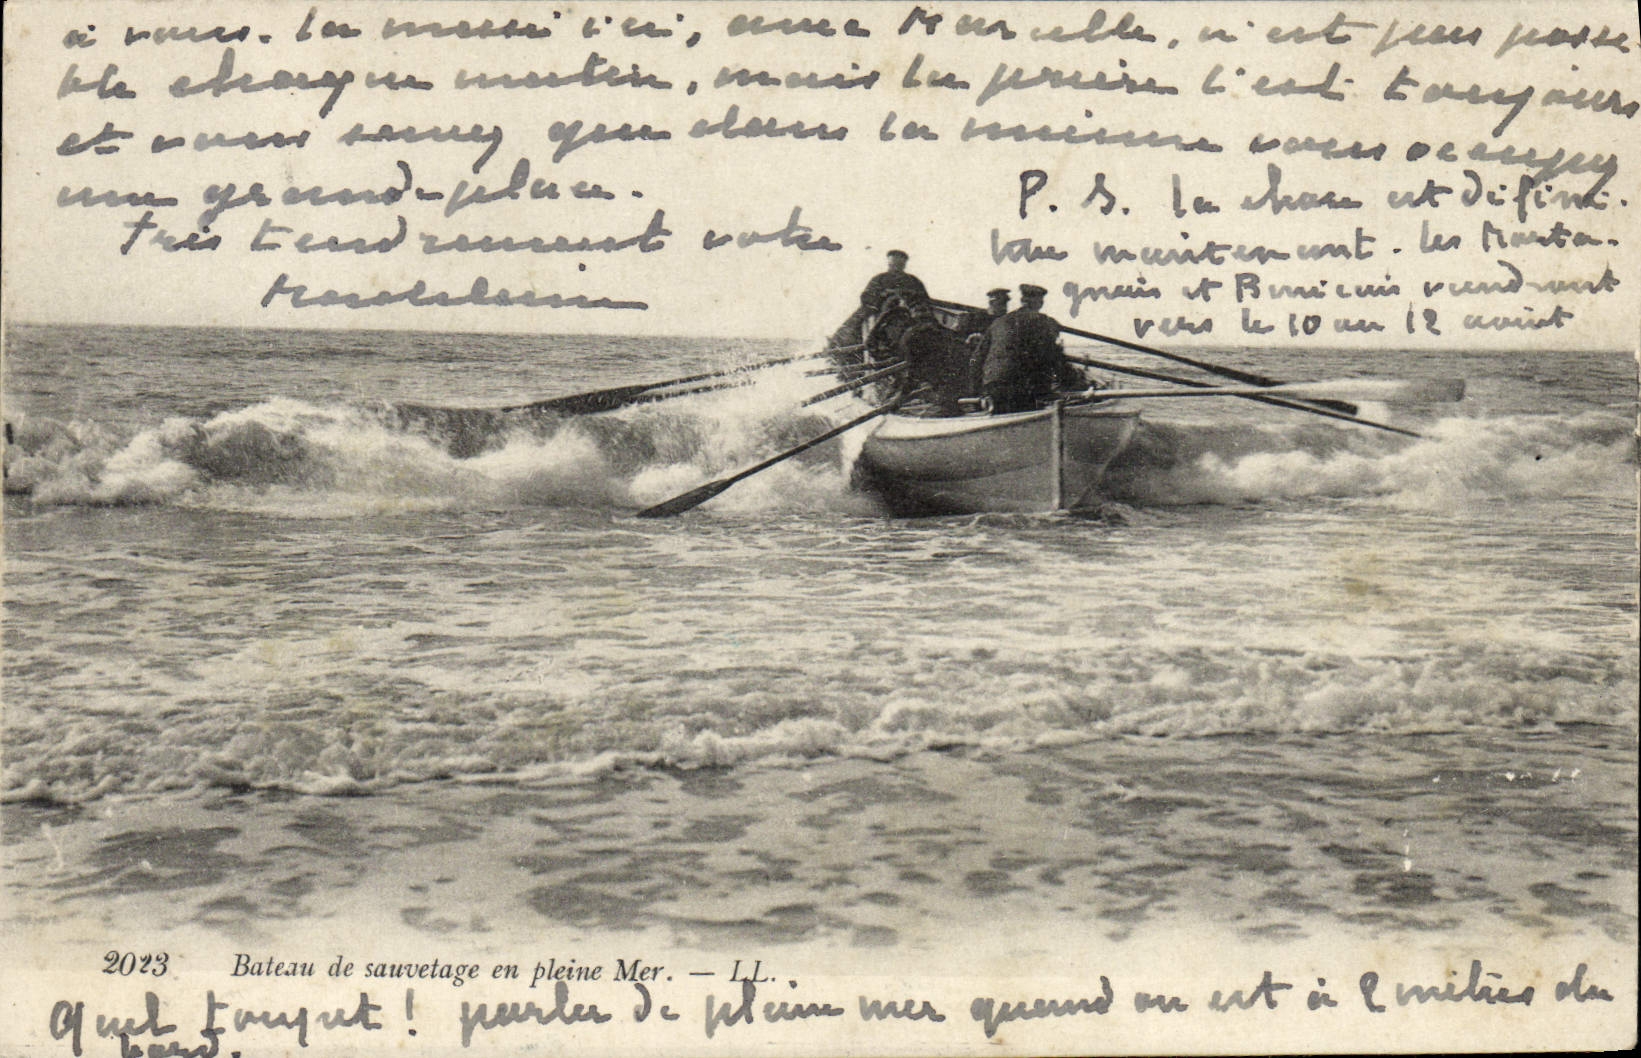 à vous. La messe ici, avec Marcelle, n'est pas possi-
ble chaque matin, mais la prière l'est toujours
et vous savez que dans la mienne vous occupez
une grande place.
Très tendrement votre
Madeleine
P. S. La chose est défini-
tive maintenant. Les Monta-
gnais et viendront
vers le 10 ou 12 août
2023 Bateau de sauvetage en pleine Mer. — LL.
Quel toupet ! parler de pleine mer quand on est à 2 mètres du
bord.